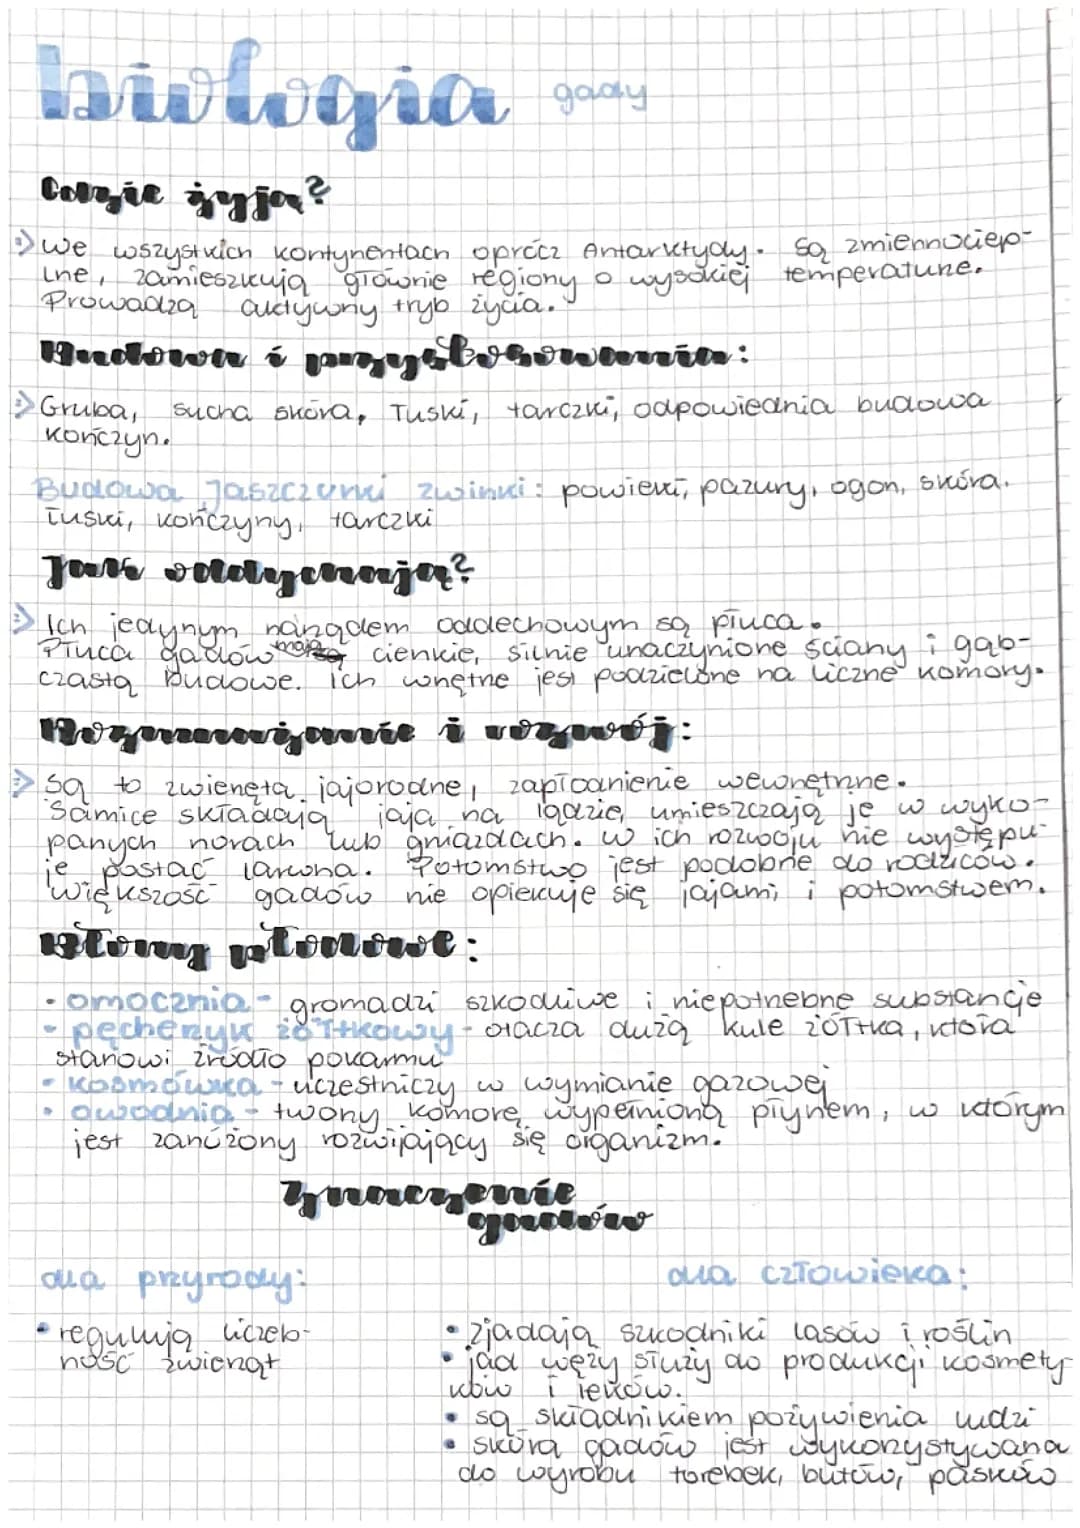 biologia gady
Gdzie żyją?
We wszystkich kontynentach oprócz Antarktydy. Są zmiennociep-
lne, zamieszkują głównie regiony o wysokiej temperaturze.
Prowadzą aktywny tryb życia.
Budowa i przystosowania:
Gruba, sucha skóra, łuski, tarczki, odpowiednia budowa
kończyn.
Budowa Jaszczurki zwinki: powieki, pazury, ogon, skóra.
łuski, kończyny, tarczki
Jak oddychają?
Ich jedynym narządem oddechowym są płuca.
Płuca gadów mają cienkie, silnie unaczynione ściany i gąb-
czastą budowe. Ich wnętrze jest podzielone na liczne komory.
Rozmnażanie i rozwój:
Są to zwierzęta jajorodne, zapłodnienie wewnętrzne.
Samice składają jaja na lądzie, umieszczają je w wyko-
panych norach lub gniazdach. W ich rozwoju nie występu-
je postać larwna. Potomstwo jest podobne do rodziców.
Większość gadów nie opiekuje się jajami i potomstwem.
Błony płodowe:
• omocznia - gromadzi szkodliwe i niepotrzebne substancje
• pęcherzyk żółtkowy - otacza dużą kule żółtka, która
stanowi źródło pokarmu
• kosmówka - uczestniczy w wymianie gazowej
• owodnia - tworzy komorę wypełnioną płynem, w którym
jest zanużony rozwijający się organizm.
Znaczenie
gadów
dla przyrody:
• regulują liczeb-
ność zwierząt
dla człowieka:
• zjadają szkodniki lasów i roślin
• jad węży służy do produkcji kosmety-
ków i leków.
• są składnikiem pożywienia ludzi
• skóra gadów jest wykorzystywana
do wyrobu torebek, butów, pasków